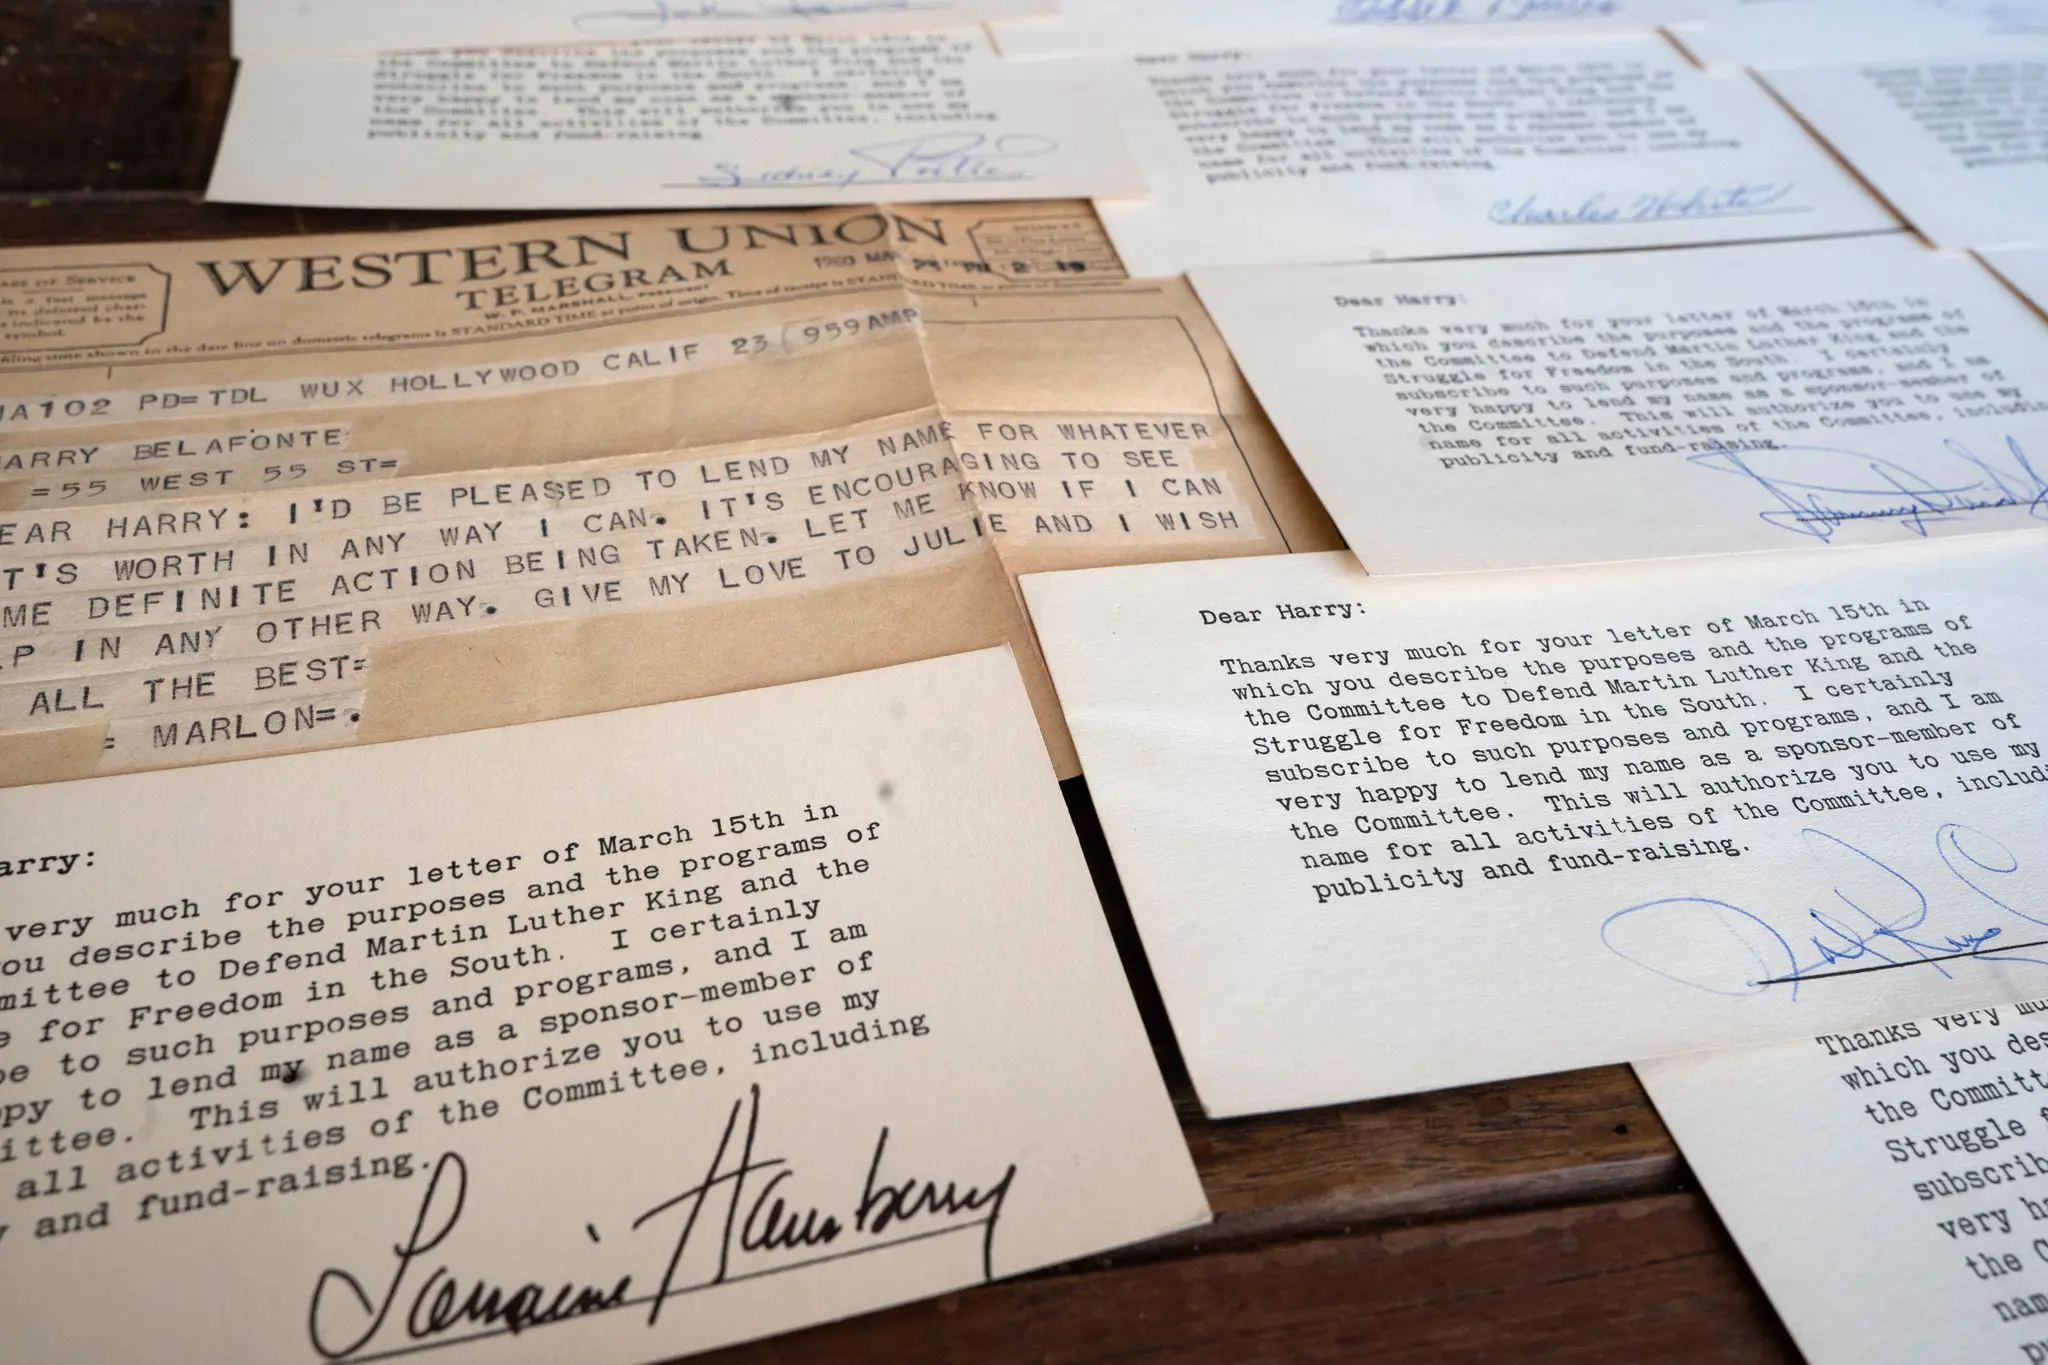 the Committee to Defend Martin Luther King and the
Struggle for Freedom in the South. I certainly
subscribe to such purposes and programs, and I am
very happy to lend my name as a sponsor-member of
the Committee. This will authorize you to use my
name for all activities of the Committee, including
publicity and fund-raising.
Sidney Poitier
Dear Harry:
Thanks very much for your letter of March 15th in
which you describe the purposes and the programs of
the Committee to Defend Martin Luther King and the
Struggle for Freedom in the South. I certainly
subscribe to such purposes and programs, and I am
very happy to lend my name as a sponsor-member of
the Committee. This will authorize you to use my
name for all activities of the Committee, including
publicity and fund-raising.
Charles White
WESTERN UNION
TELEGRAM
W. P. MARSHALL, PRESIDENT
1960 MAR 23 PM 2 19
OF SERVICE
is a fast message
its deferred char-
indicated by the
symbol.
filing time shown in the date line on domestic telegrams is STANDARD TIME at point of origin. Time of receipt is STANDARD TIME at point of destination
A102 PD=TDL WUX HOLLYWOOD CALIF 23 (959AMP
ARRY BELAFONTE
=55 WEST 55 ST=
EAR HARRY: I'D BE PLEASED TO LEND MY NAME FOR WHATEVER
T'S WORTH IN ANY WAY I CAN. IT'S ENCOURAGING TO SEE
ME DEFINITE ACTION BEING TAKEN. LET ME KNOW IF I CAN
P IN ANY OTHER WAY. GIVE MY LOVE TO JULIE AND I WISH
ALL THE BEST=
= MARLON=.
Dear Harry:
Thanks very much for your letter of March 15th in
which you describe the purposes and the programs of
the Committee to Defend Martin Luther King and the
Struggle for Freedom in the South. I certainly
subscribe to such purposes and programs, and I am
very happy to lend my name as a sponsor-member of
the Committee. This will authorize you to use my
name for all activities of the Committee, including
publicity and fund-raising.
Dear Harry:
Thanks very much for your letter of March 15th in
which you describe the purposes and the programs of
the Committee to Defend Martin Luther King and the
Struggle for Freedom in the South. I certainly
subscribe to such purposes and programs, and I am
very happy to lend my name as a sponsor-member of
the Committee. This will authorize you to use my
name for all activities of the Committee, includi
publicity and fund-raising.
arry:
very much for your letter of March 15th in
ou describe the purposes and the programs of
mittee to Defend Martin Luther King and the
e for Freedom in the South. I certainly
be to such purposes and programs, and I am
ppy to lend my name as a sponsor-member of
ittee. This will authorize you to use my
all activities of the Committee, including
y and fund-raising.
Lorraine Hansberry
Thanks very mu
which you des
the Committe
Struggle f
subscrib
very ha
the C
nam
pu